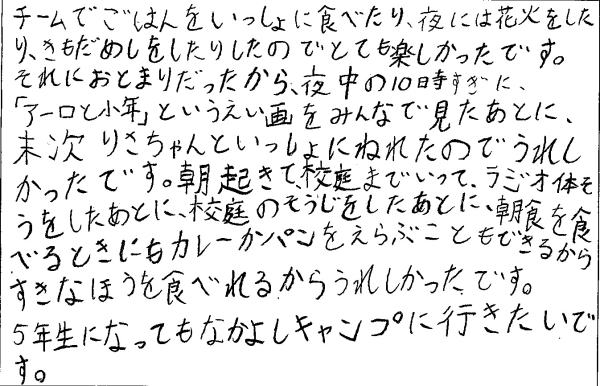 チームでごはんをいっしょに食べたり、夜には花火をした
り、きもだめしをしたりしたのでとても楽しかったです。
それにおとまりだったから、夜中の10時すぎに、
「アーロと少年」というえい画をみんなで見たあとに、
末次りさちゃんといっしょにねれたのでうれし
かったです。朝起きて、校庭までいって、ラジオ体そ
うをしたあとに、校庭のそうじをしたあとに、朝食を食
べるときにもカレーかパンをえらぶこともできるから
すきなほうを食べれるからうれしかったです。
5年生になってもなかよしキャンプに行きたいで
す。